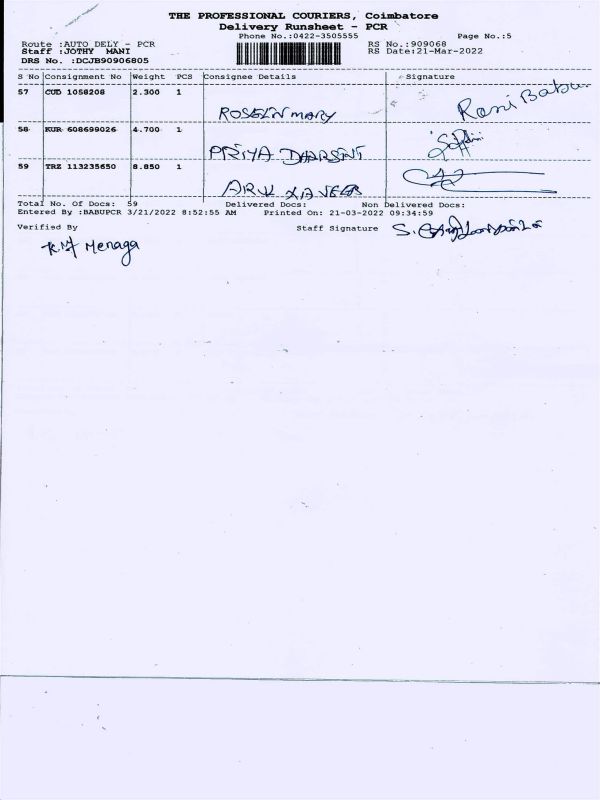 THE PROFESSIONAL COURIERS, Coimbatore
Delivery Runsheet - PCR
Phone No.:0422-3505555 Page No.:5
Route :AUTO DELY - PCR RS No.:909068
Staff :JOTHY MANI RS Date:21-Mar-2022
DRS No. :DCJB90906805
S No Consignment No Weight PCS Consignee Details Signature
57 CUD 1058208 2.300 1
ROSELIN MARY Rani Babu
58 KUR 608699026 4.700 1
PRIYA DHARSINI
59 TRZ 113235650 8.850 1
ARUL XAVIER
Total No. Of Docs: 59 Delivered Docs: Non Delivered Docs:
Entered By :BABUPCR 3/21/2022 8:52:55 AM Printed On: 21-03-2022 09:34:59
Verified By Staff Signature
K.M Menaga